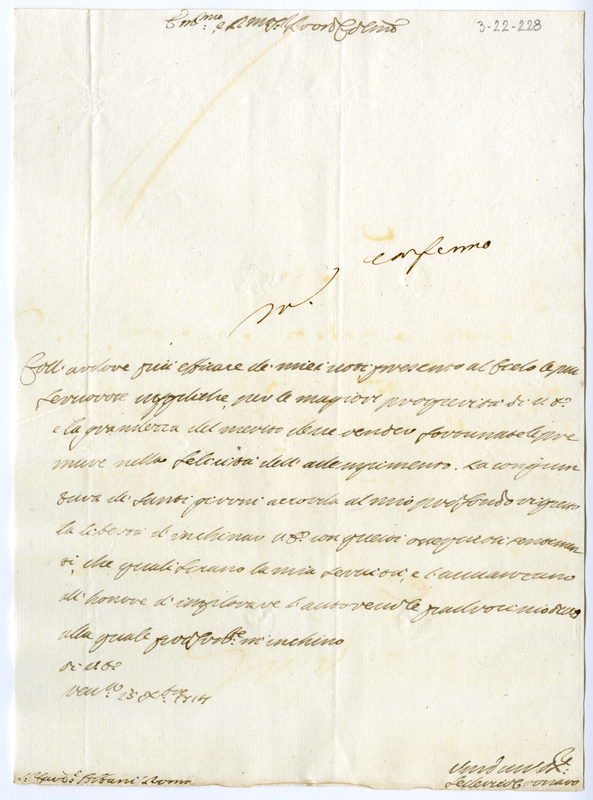 Em.mo e Rmo Sig.r
3-22-228
confermo
Coll'ardore più efficace de miei voti presento al Cielo le più
fervorose suppliche, per le maggiori prosperità di V. Em.
e la grandezza del merito deve render fortunate le pre
mure nella felicità dell'adempimento. La congiun
tura di Santi giorni accorda al mio profondo rispetto
la libertà d'inchinar V. Em. con questi ossequiosi sentimen
ti, che qualificano la mia servitù, e l'avvanzano
all'honore d'implorare l'autorevole padrocinio
alla quale profond.te m'inchino
Di V. Em.
Ven.a Xbre
Card. Albani Roma